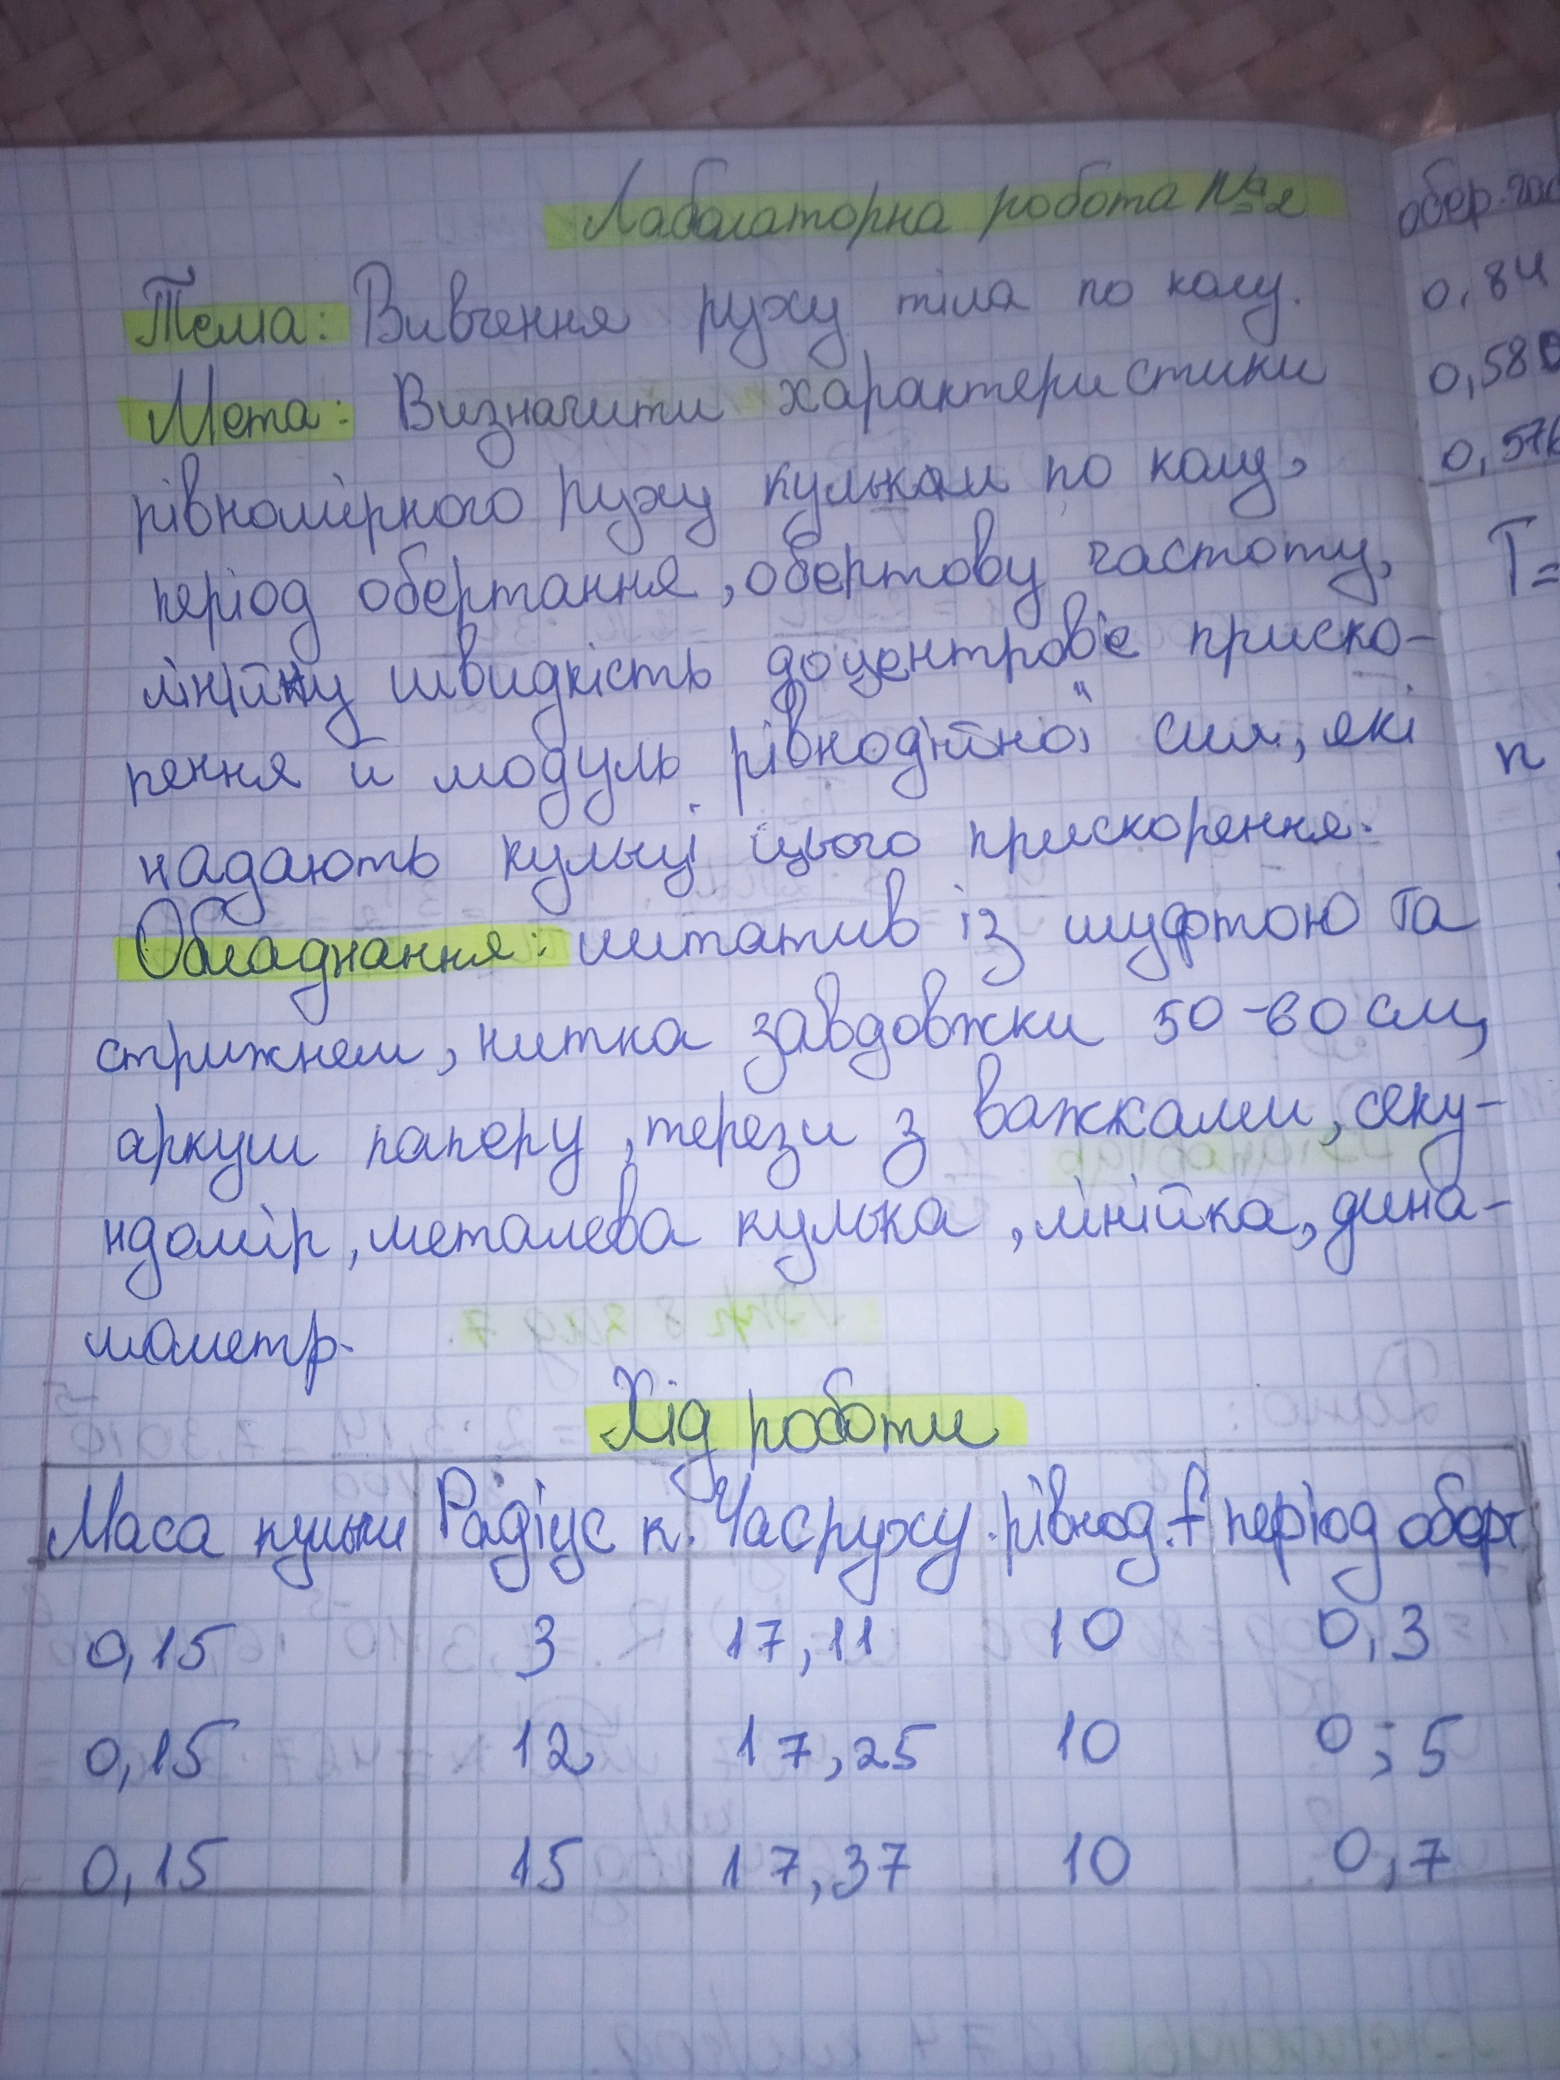 Лабораторна робота №2
Тема: Вивчення руху тіла по колу.
Мета: Визначити характеристики
рівномірного руху кульки по колу,
період обертання, обертову частоту,
лінійну швидкість доцентрове приско-
рення й модуль рівнодійної сил, які
надають кульці цього прискорення.
Обладнання: штатив із муфтою та
стрижнем, нитка завдовжки 50-60 см,
аркуш паперу, терези з важками, секу-
ндомір, металева кулька, лінійка, дина-
мометр.
Хід роботи
Маса кульки Радіус к. Час руху. рівнод. f період оберт
0,15 3 17,11 10 0,3
0,15 12 17,25 10 0,5
0,15 15 17,37 10 0,7
обер. час
0,84
0,580
0,576
T=
n